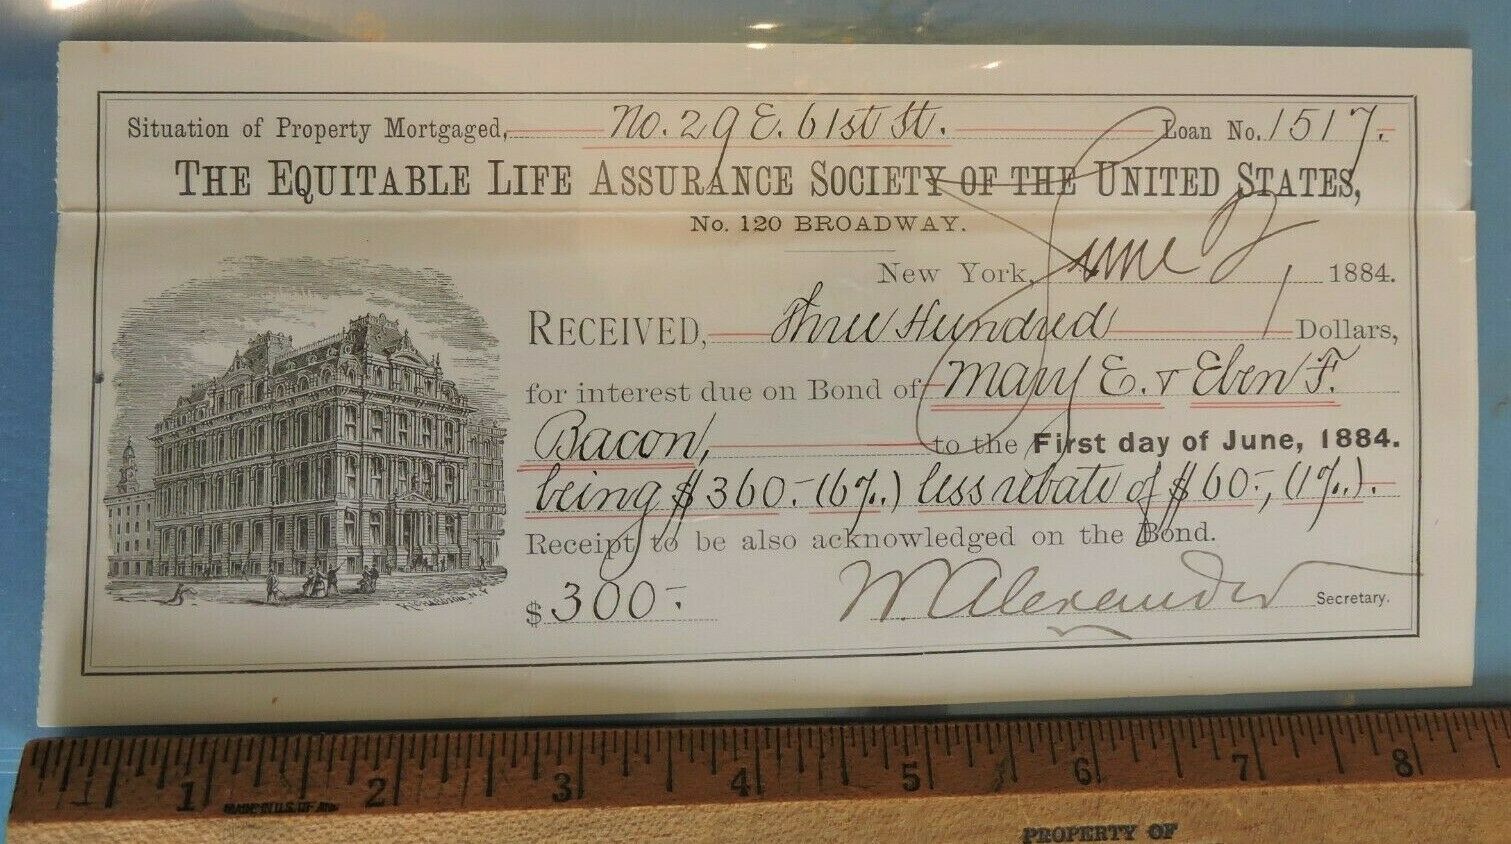 Situation of Property Mortgaged, No. 29 E. 61st St. Loan No. 1517.
THE EQUITABLE LIFE ASSURANCE SOCIETY OF THE UNITED STATES,
No. 120 BROADWAY.
New York, June 1884.
RECEIVED, Three Hundred Dollars,
for interest due on Bond of Mary E. & Eben F.
Bacon, to the First day of June, 1884.
being $360.- (6%.) less rebate of $60.-, (1%.).
Receipt to be also acknowledged on the Bond.
$300.- W. Alexander Secretary.
1 2 3 4 5 6 7 8
MADE IN U.S. OF AM
PROPERTY OF